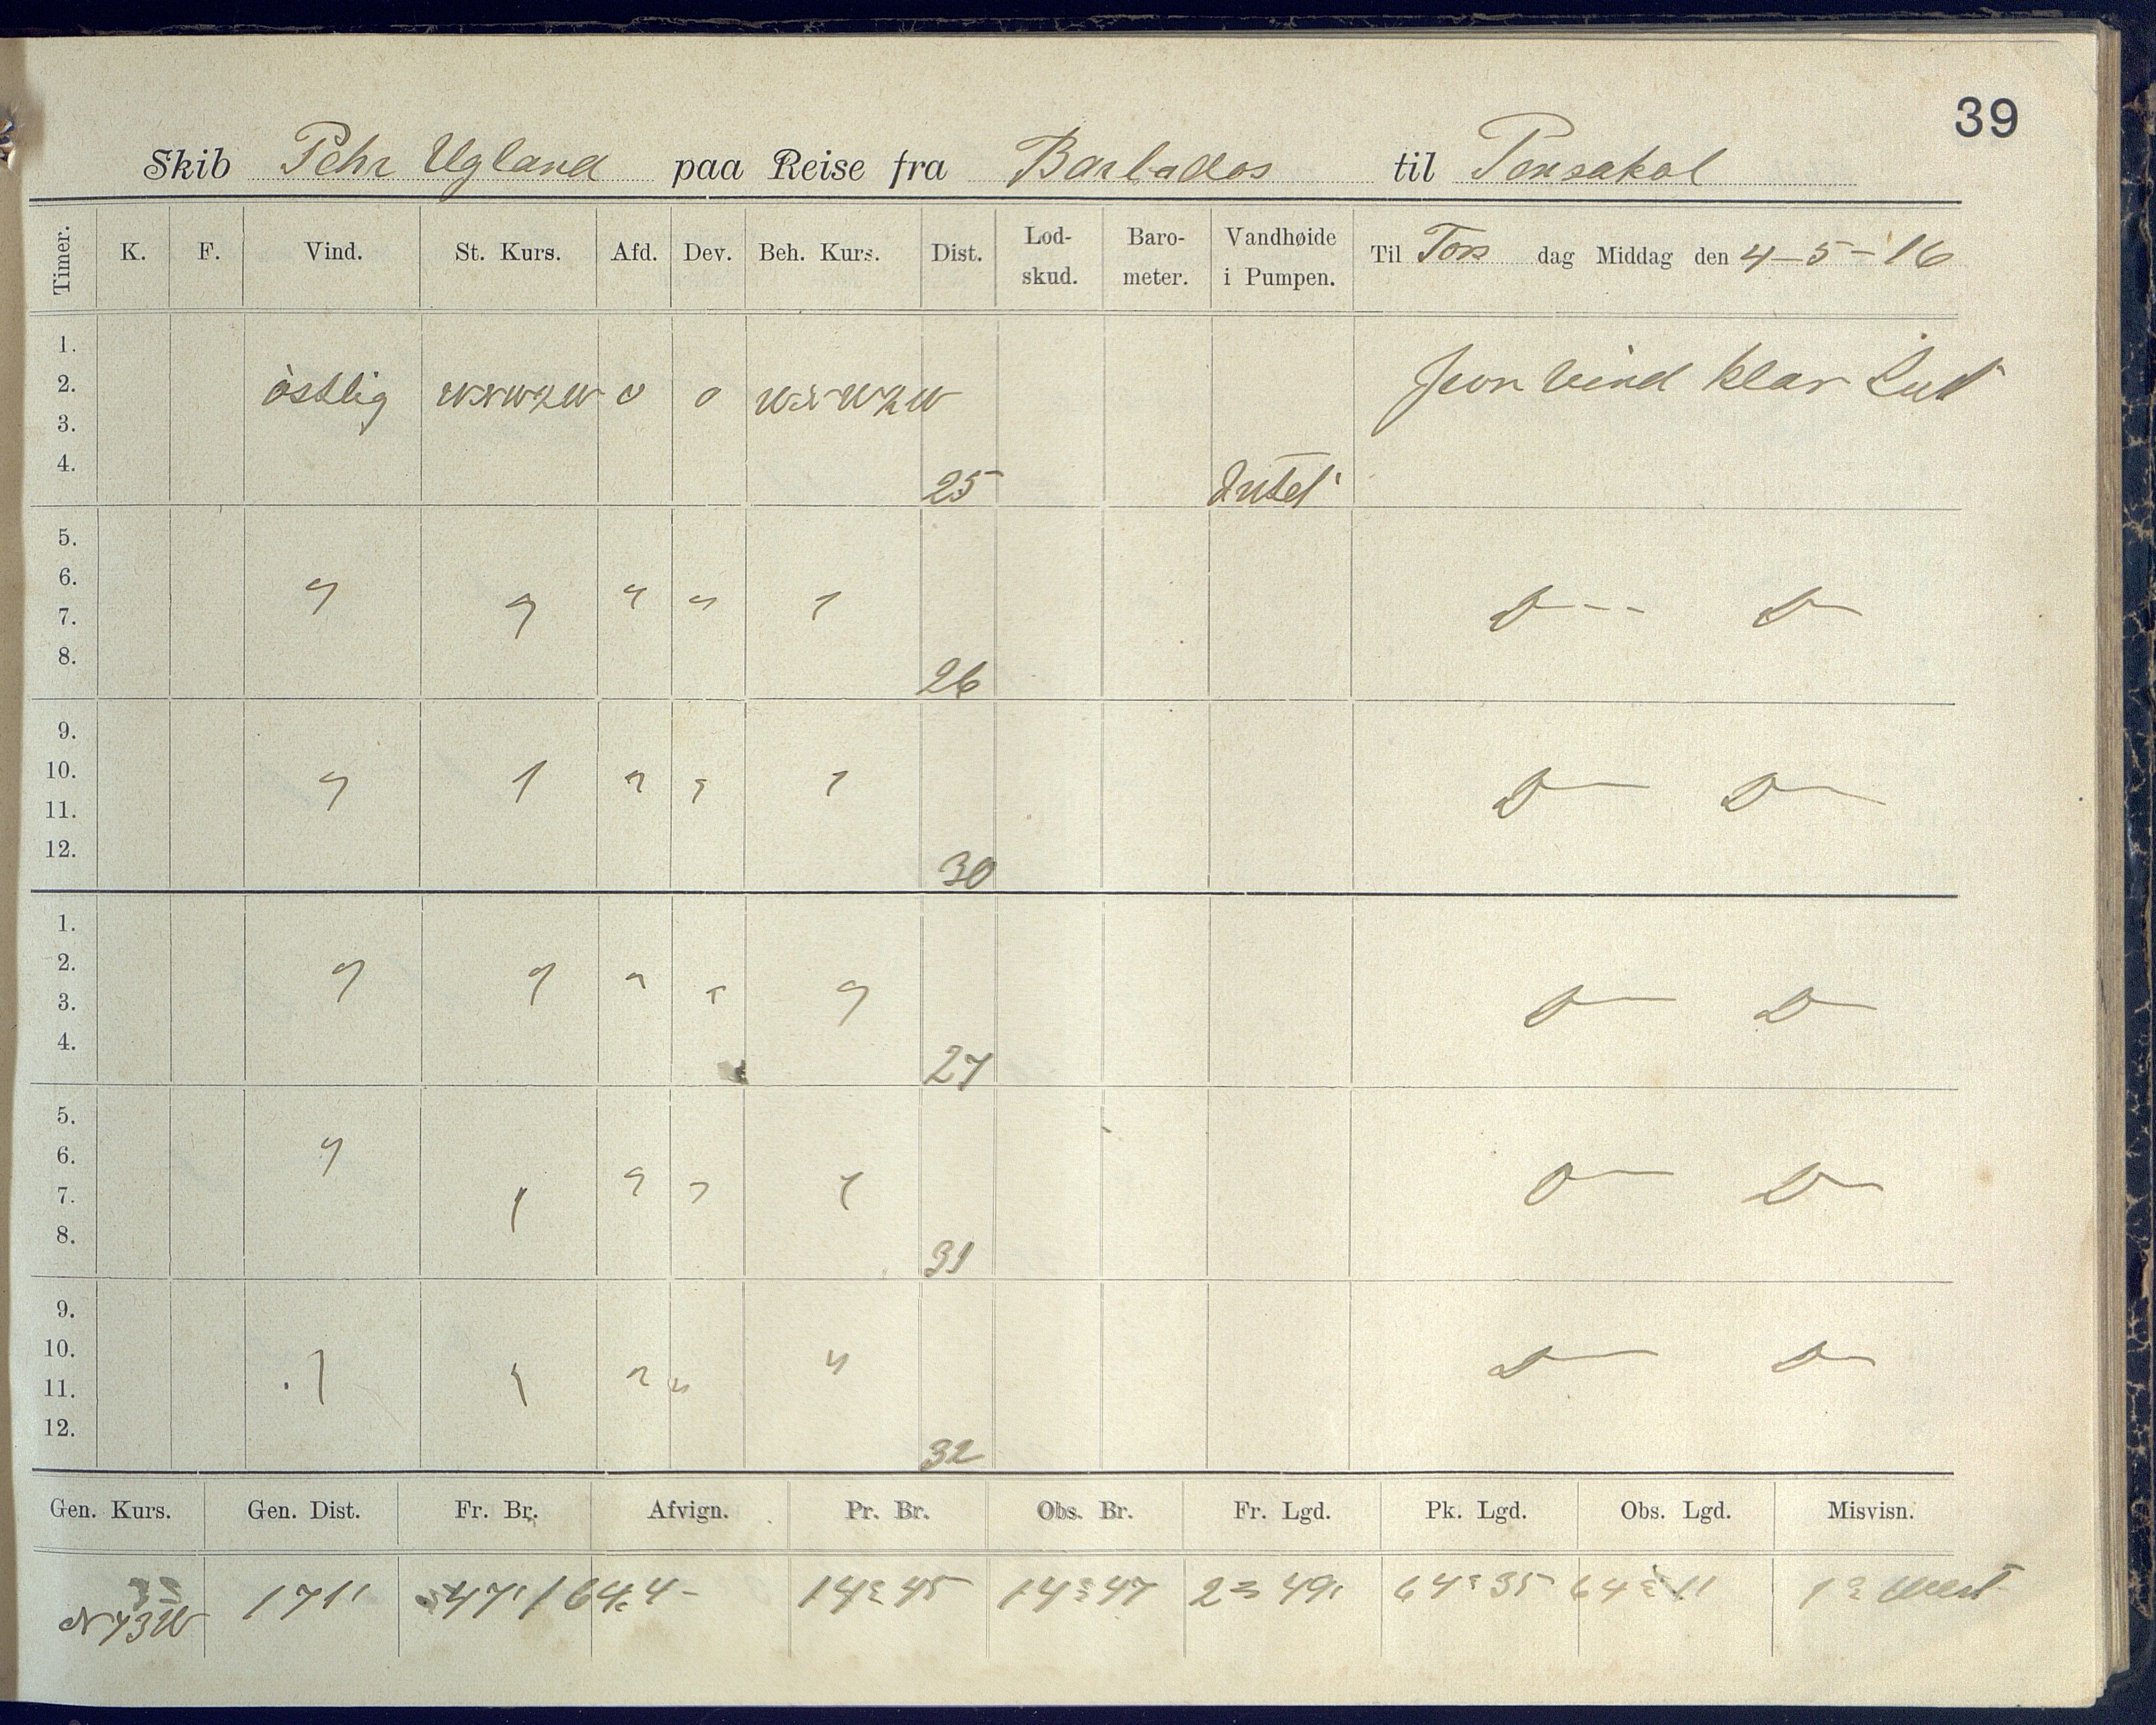 39
Skib Pehr Ugland paa Reise fra Barbados til Pensakol
Timer. K. F. Vind. St. Kurs. Afd. Dev. Beh. Kurs. Dist. Lod-skud. Baro-meter. Vandhøide i Pumpen. Til Tors dag Middag den 4-5-16
1.
2. östlig WNW½W 0 0 WNW½W Jevn vind klar Luft
3.
4. 25 Intet
5.
6. " " " " " D-- D-
7.
8. 26
9.
10. " " " " " D- D-
11.
12. 30
1.
2. " " " " " D- D-
3.
4. 27
5.
6. " " " " " D- D-
7.
8. 31
9.
10. " " " " " D- D-
11.
12. 32
Gen. Kurs. Gen. Dist. Fr. Br. Afvign. Pr. Br. Obs. Br. Fr. Lgd. Pk. Lgd. Obs. Lgd. Misvisn.
N73W 171' 47' 164,4 14° 45 14° 47 2° 49' 64° 35 64° 11 1° West